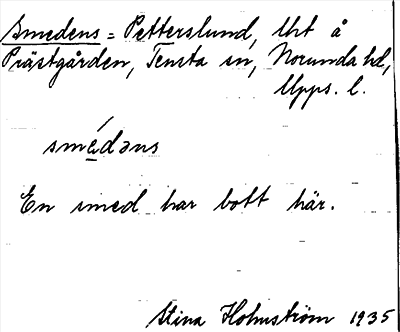 Smedens = Petterslund, lht å
Prästgården, Tensta sn, Norunda hd,
Upps. l.
smédəns
En smed har bott här.
Stina Holmström 1935